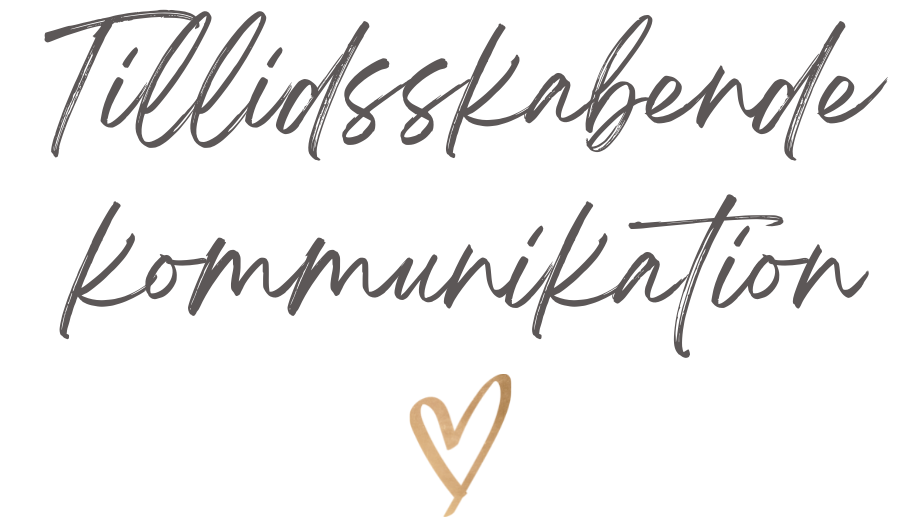 Tillidsskabende
kommunikation